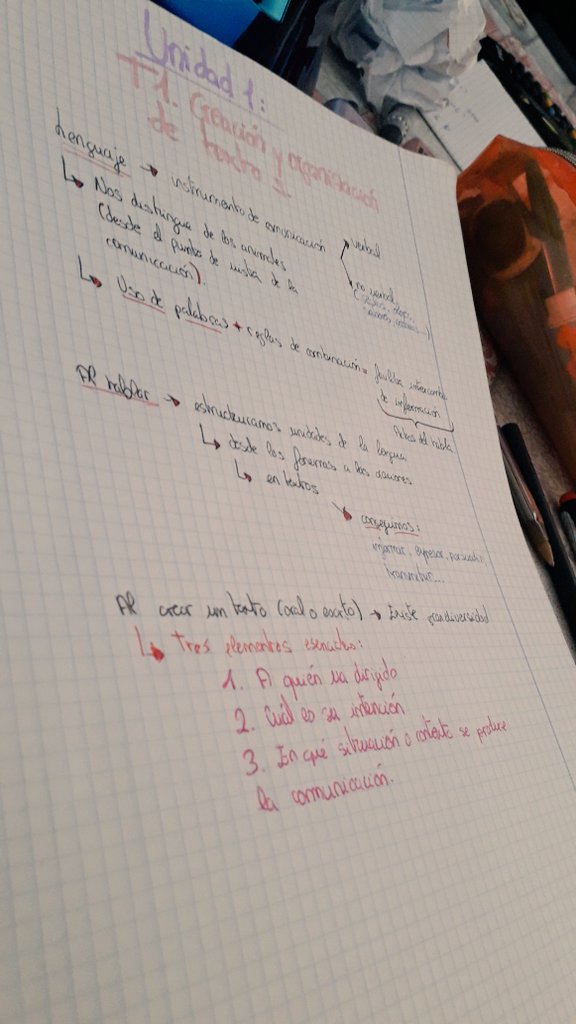 Unidad 1:
T1. Creación y organización
de textos I
Lenguaje → instrumento de comunicación
verbal
no verbal
↳ Nos distingue de los animales
(desde el punto de vista de la
comunicación).
↳ Uso de palabras + reglas de combinación = facilita intercambio
de información
Actos del habla
Al hablar → estructuramos unidades de la lengua
↳ desde los fonemas a las oraciones
↳ en textos
↘ conseguimos:
informar, expresar, persuadir,
transmitir...
Al crear un texto (oral o escrito) → Existe gran diversidad
↳ Tres elementos esenciales:
1. A quién va dirigido
2. Cuál es su intención
3. En qué situación o contexto se produce
la comunicación.